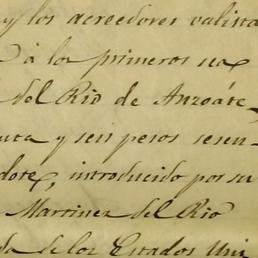 y los acreedores valista
á los primeros na
del Rio de Anzoáte
nta y seis pesos sesen
dote, introducido por su
Martinez del Rio
da de los Estados Uni